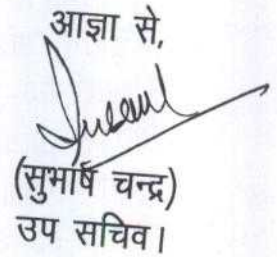 आज्ञा से,
(सुभाष चन्द्र)
उप सचिव।